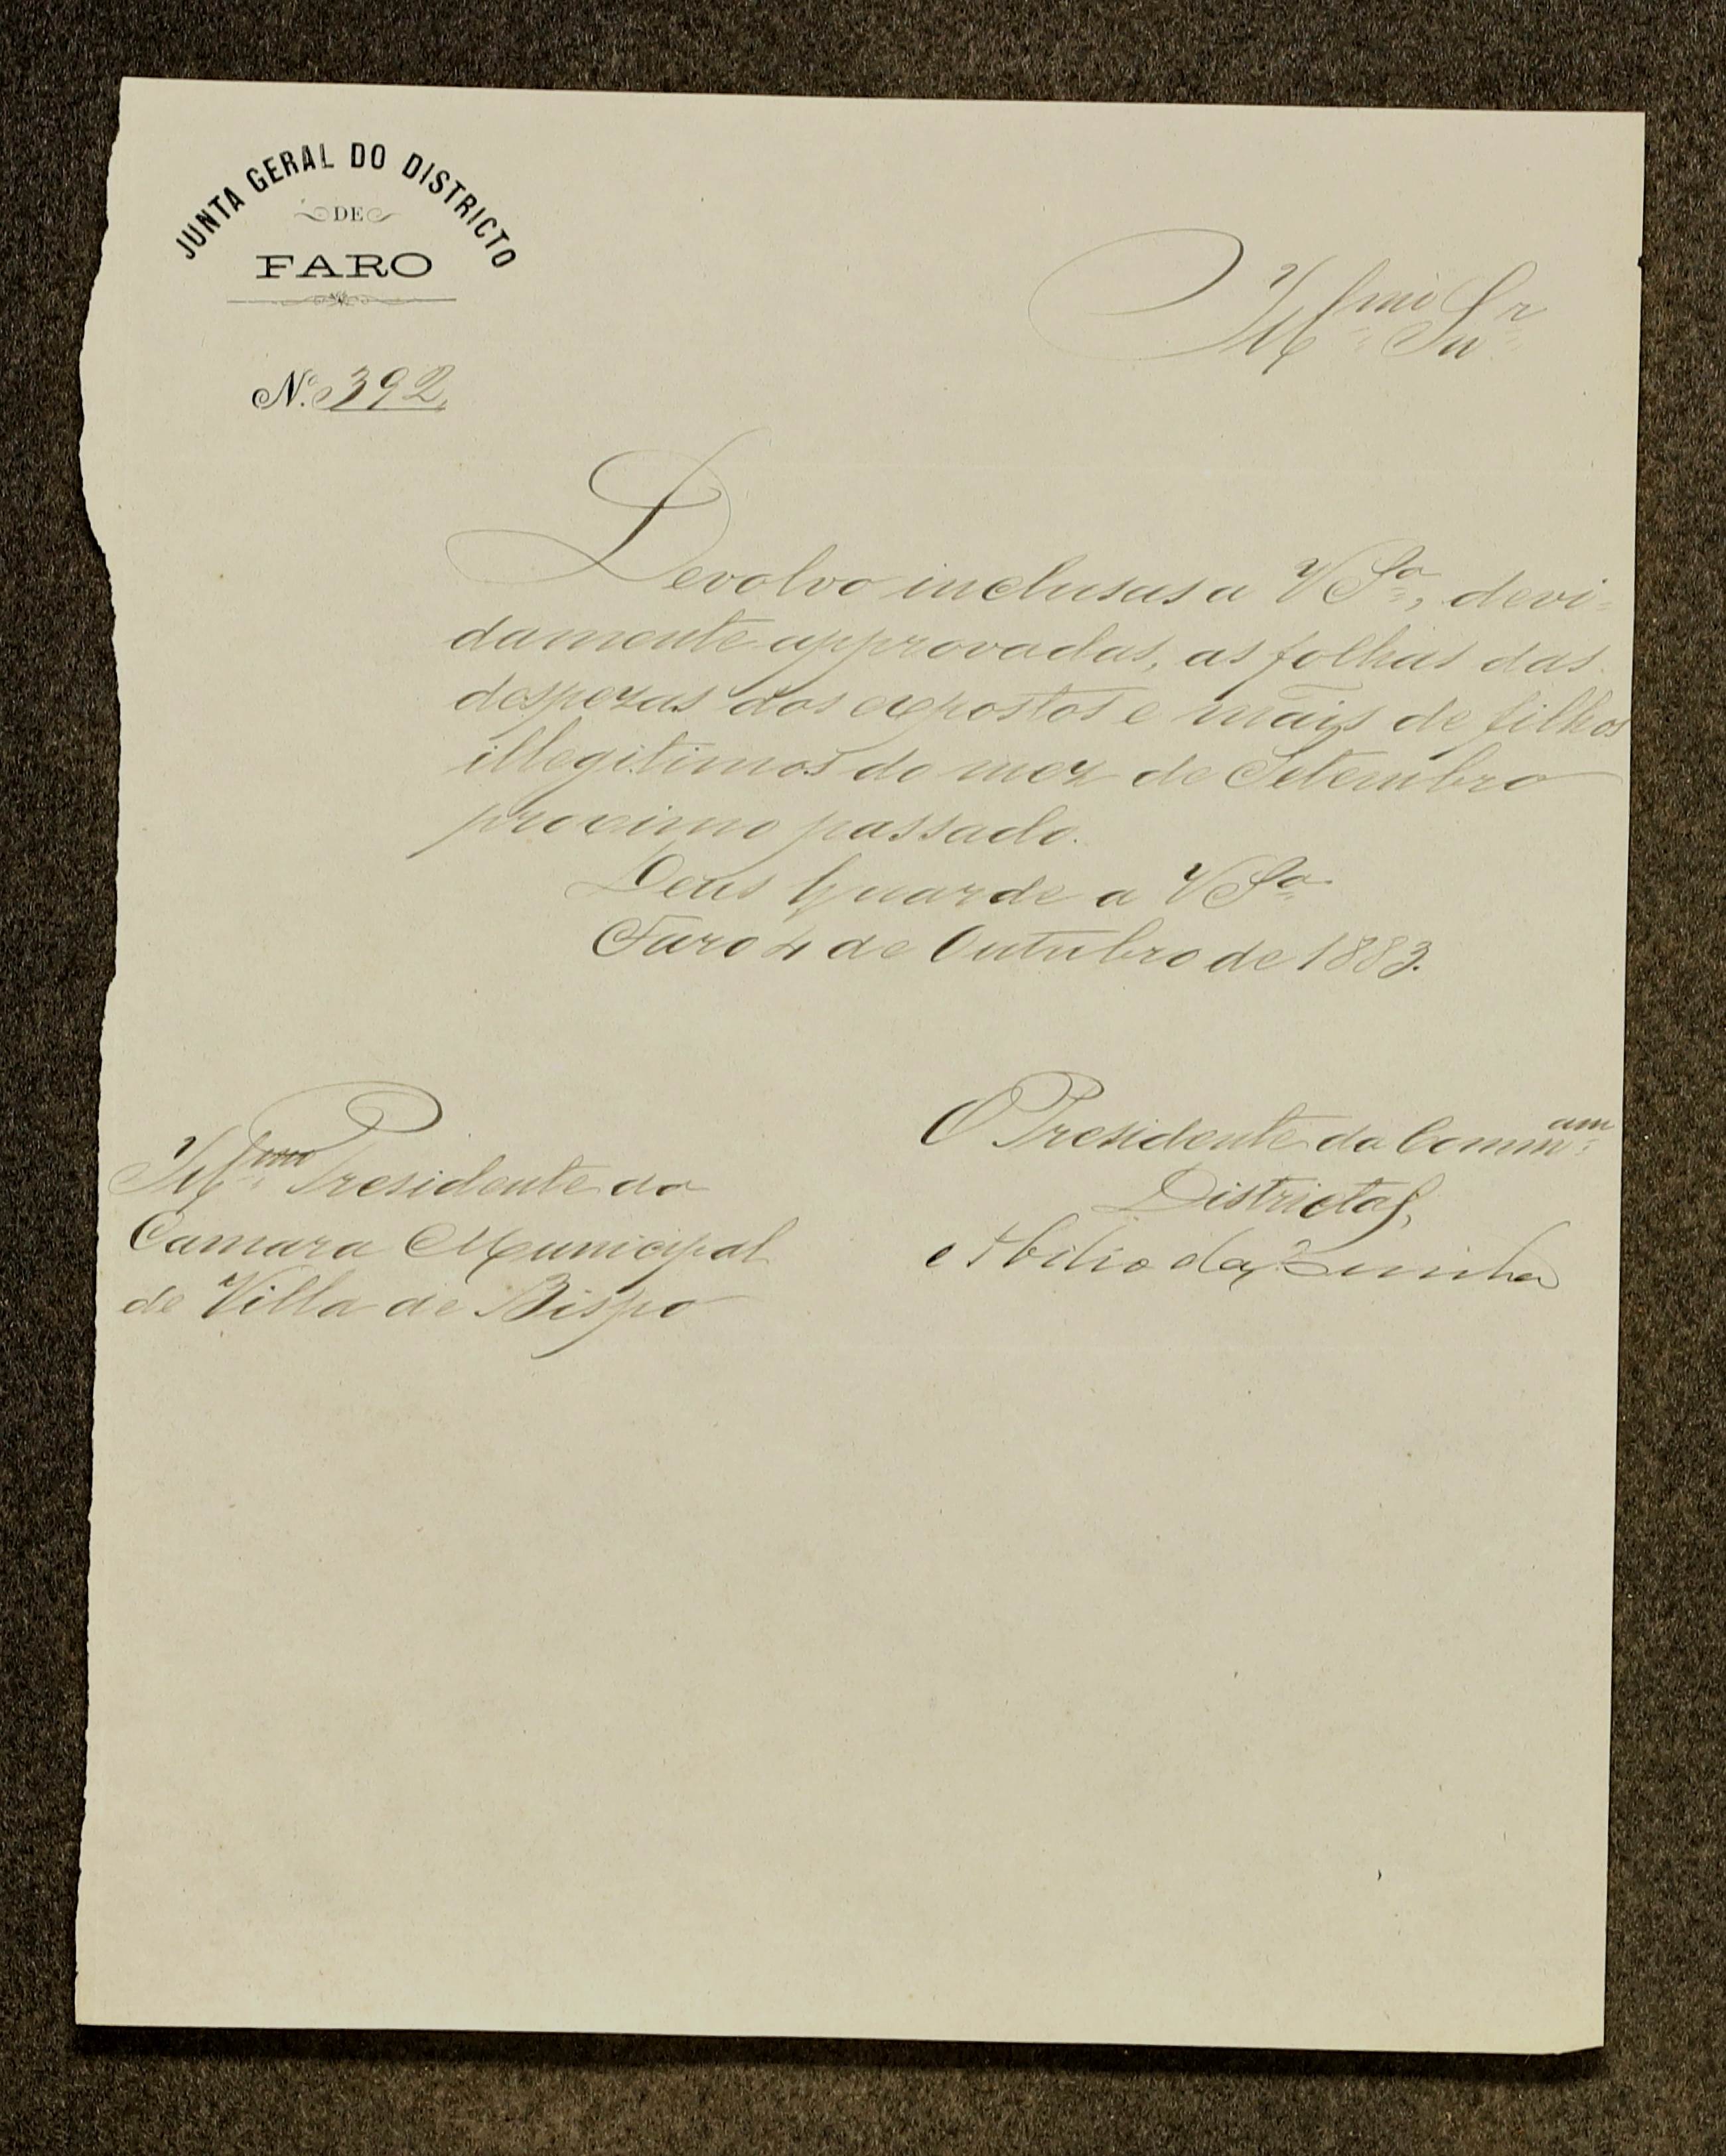 JUNTA GERAL DO DISTRICTO
DE
FARO
N.º 392.
Illmo Snr
Devolvo inclusas a V Sa, devi-
damente approvadas, as folhas das
despezas dos expostos e mãis de filhos
illegitimos do mez de Setembro
proximo passado.
Deus Guarde a V Sa
Faro 4 de Outubro de 1883.
O Presidente da Commam
Districtal,
Abilio da Cunha
Illmo Presidente da
Camara Municipal
de Villa do Bispo